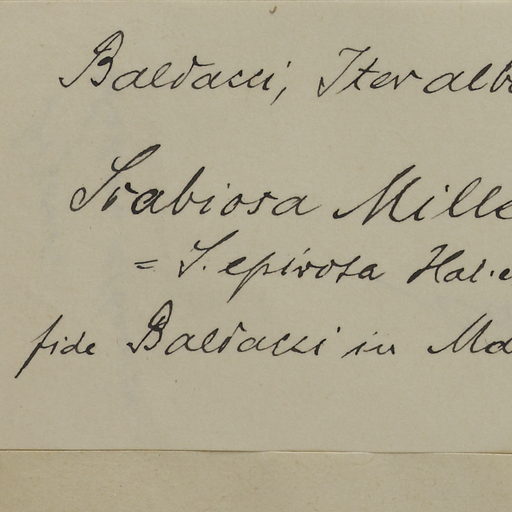 Baldacci, Iter alb
Scabiosa Mille
= S. epirota Hal. e
fide Baldacci in Ma